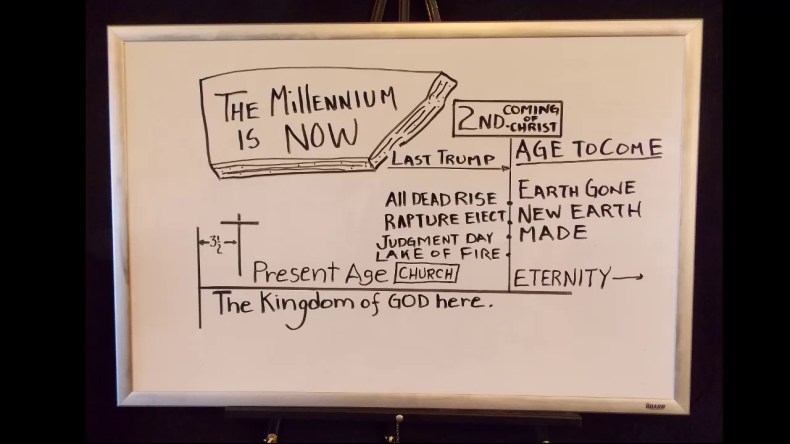 THE MillENNIUM
IS NOW
2ND COMING
OF
CHRIST
LAST TRUMP
AGE TO COME
All DEAD RISE
RAPTURE ElECT
JUDGMENT DAY
LAKE OF FIRE
EARTH GONE
NEW EARTH
MADE
3½
Present Age CHURCH
ETERNITY
The Kingdom of GOD here.